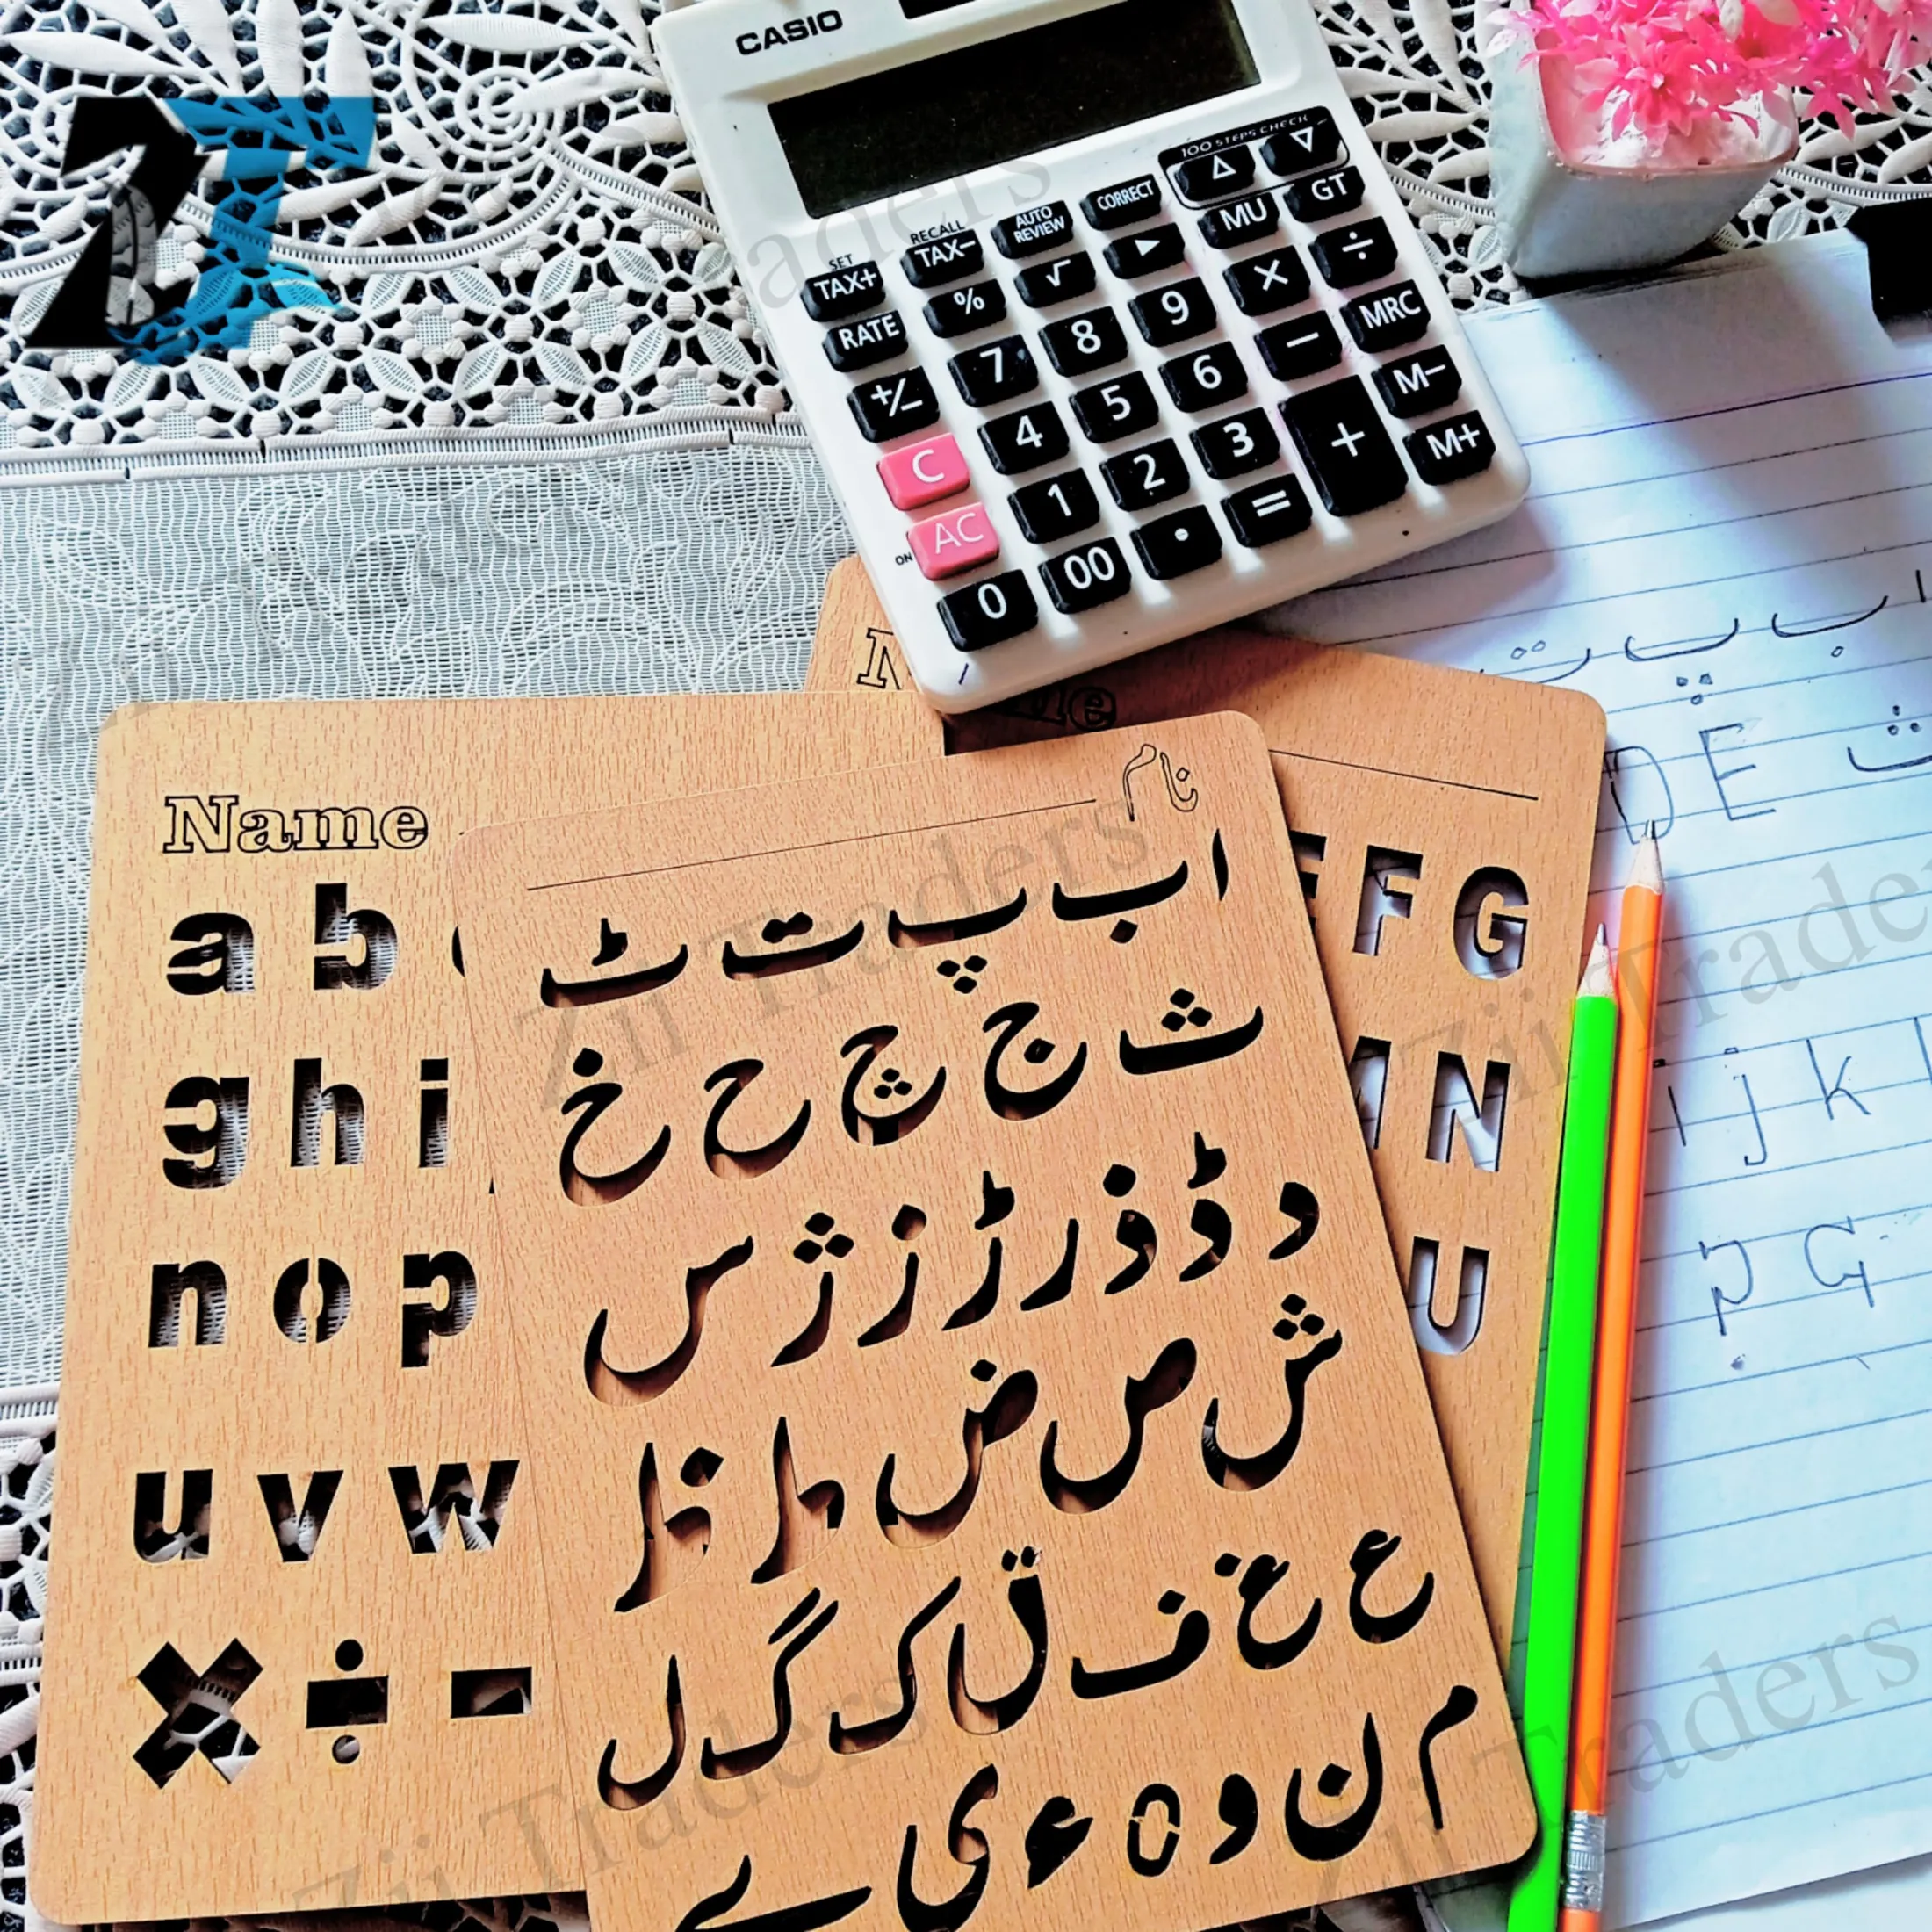 CASIO
100 STEPS CHECK
△ ▽
SET RECALL
TAX+ TAX− AUTO REVIEW CORRECT MU GT
RATE % √ ▶ × ÷
+/− 7 8 9 − MRC
C 4 5 6 + M−
ON AC 1 2 3 M+
0 00 · =
Name
a b
g h i
n o p
u v w
× ÷ -
نام
ا ب پ ت ٹ
ث ج چ ح خ
د ڈ ذ ر ڑ ز ژ س
ش ص ض ط ظ
ع غ ف ق ک گ ل
م ن و ہ ء ی ے
F G
N
U
ا ب پ ت
ث
D E
i j k l
G
Zii Traders
Zii Traders
Zii Traders
Zii Traders
Zii Traders